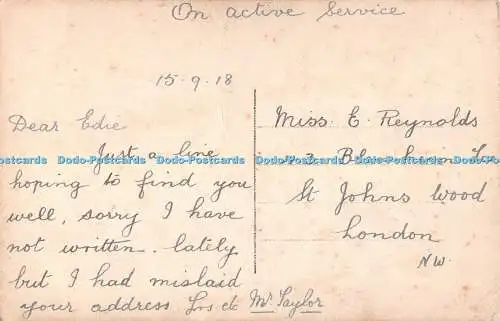 On active Service
15.9.18
Dear Edie
Just a line
hoping to find you
well, sorry I have
not written. lately,
but I had mislaid
your address Yrs etc Mr Taylor
Miss. E. Reynolds
St Johns Wood
London
NW.
Dodo-Postcards Dodo-Postcards Dodo-Postcards Dodo-Postcards Dodo-Postcards